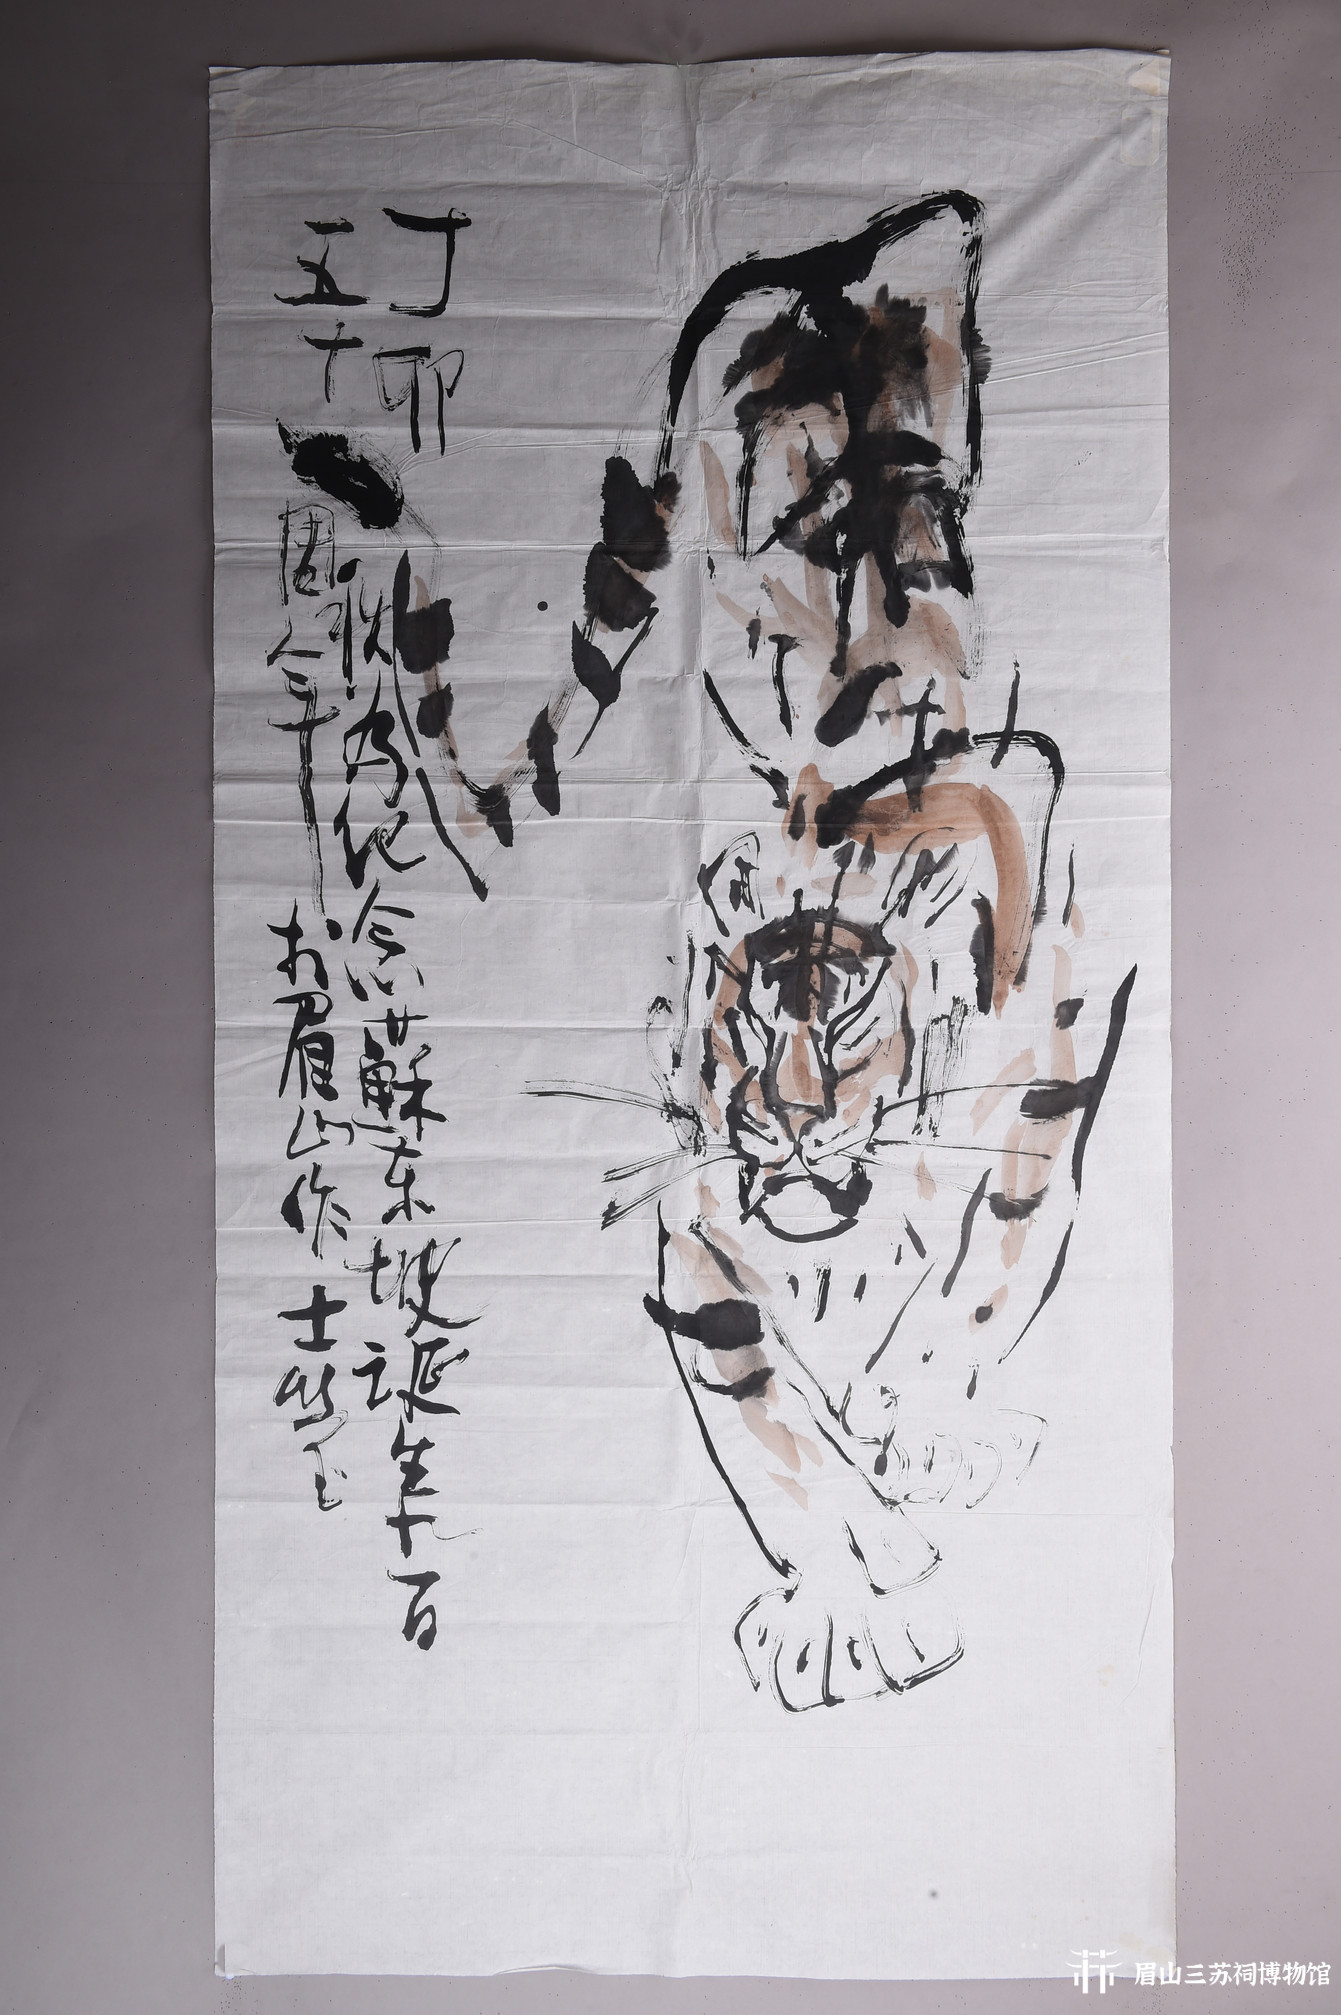 丁卯秋为纪念苏东坡诞生九百
五十周年于眉山作士
眉山三苏祠博物馆